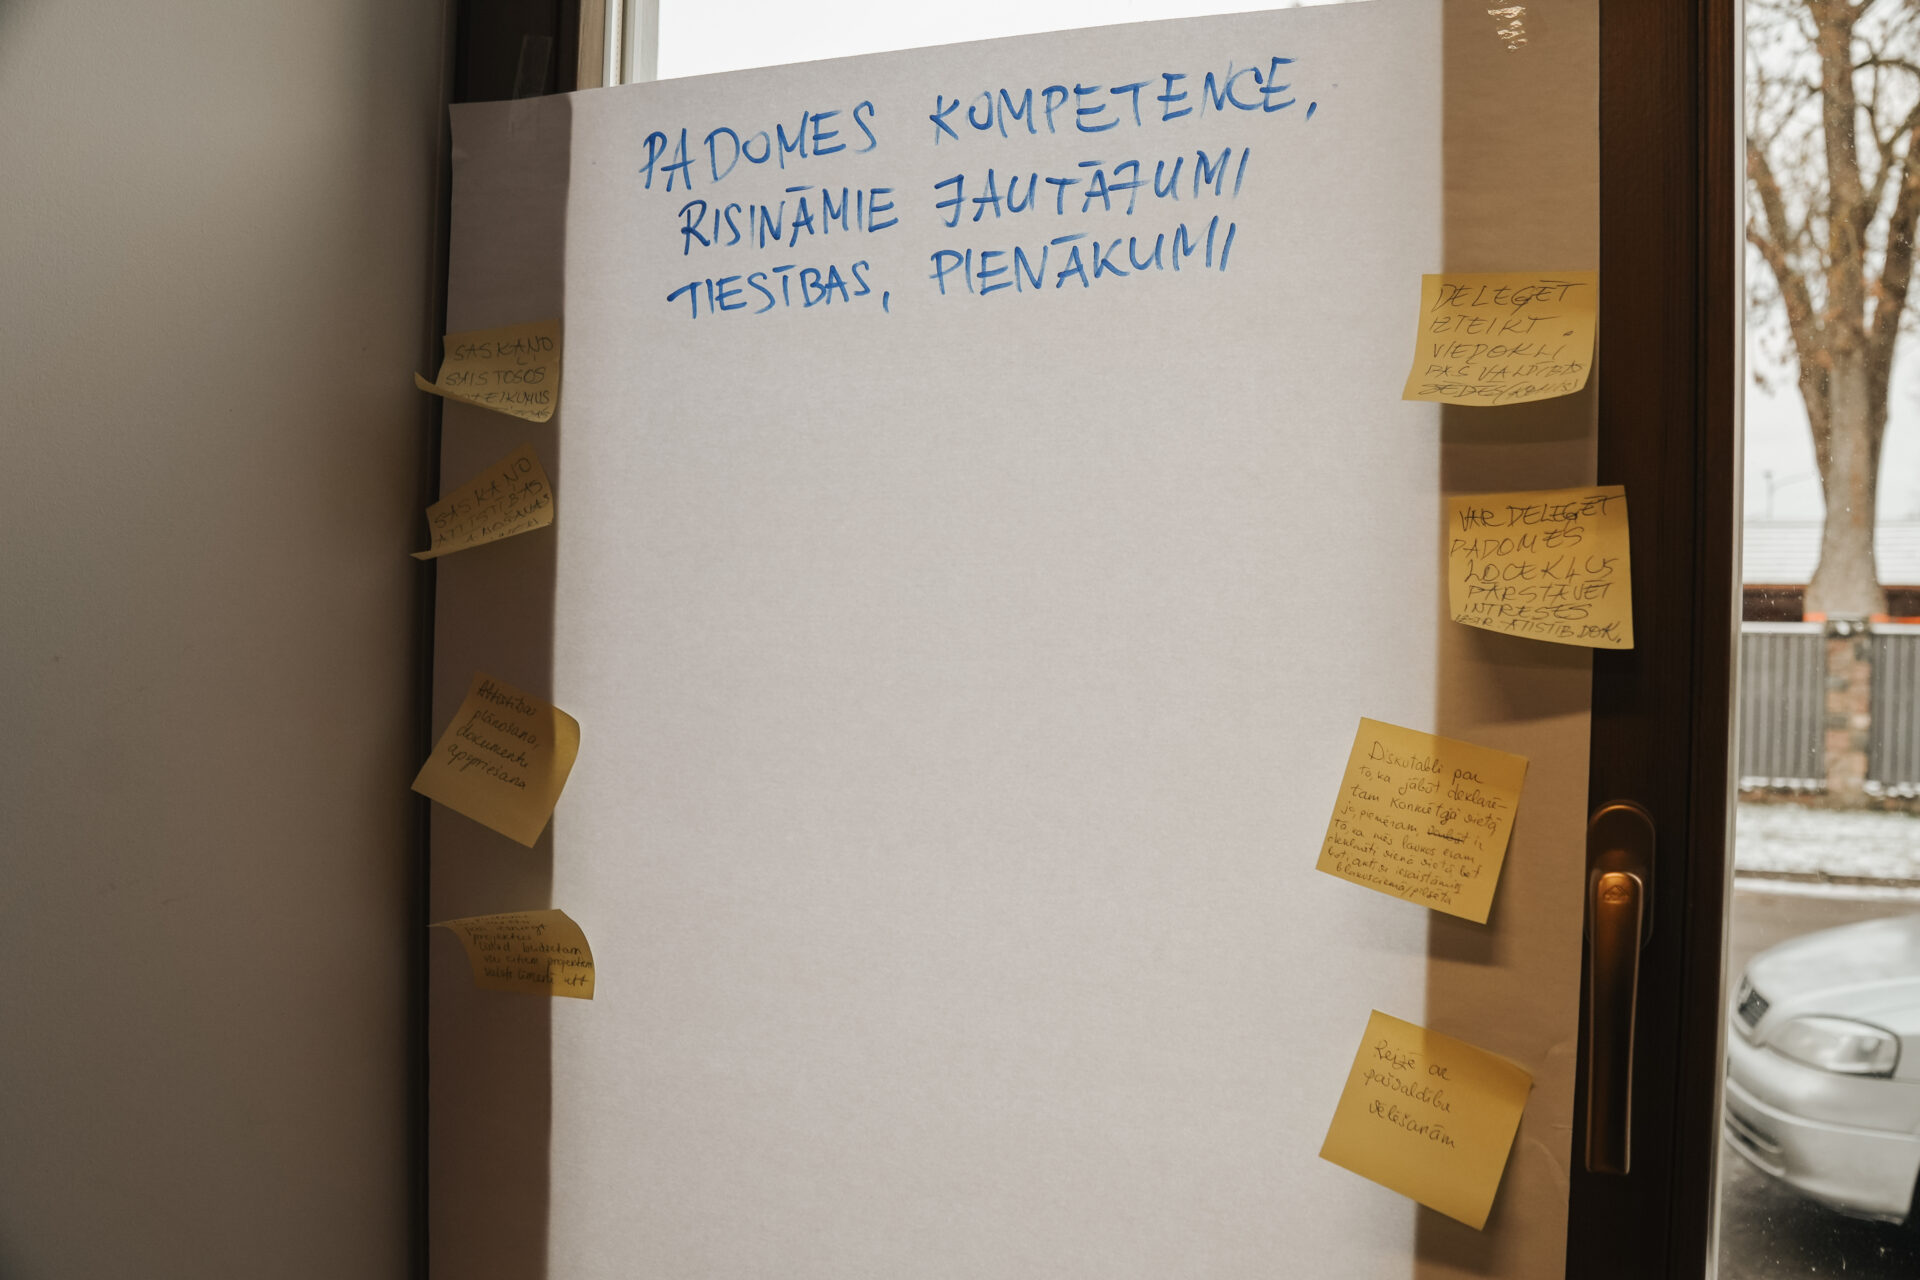 PADOMES KOMPETENCE,
RISINĀMIE JAUTĀJUMI
TIESĪBAS, PIENĀKUMI
SASKAŅO
SAISTOŠOS
NOTEIKUMUS
SASKAŅO
ATTĪSTĪBAS
Attīstības
plānošana,
dokumentu
apspriešana
projektus
valsts līmenī utt
DELEĢĒT
IZTEIKT
VIEDOKLI
PAŠVALDĪBAS
SĒDĒS
VAR DELEĢĒT
PADOMES
LOCEKĻUS
PĀRSTĀVĒT
INTRESES
ATISTĪB. DOK.
Diskutabli par
to, ka jābūt deklarē-
tam konkrētajā vietā,
jo, piemēram, ir
tā, ka mēs laukos esam
deklarēti vienā vietā, bet
aktīvi iesaistāmies
blakusciemā/pilsētā
Reizē ar
pašvaldību
vēlēšanām